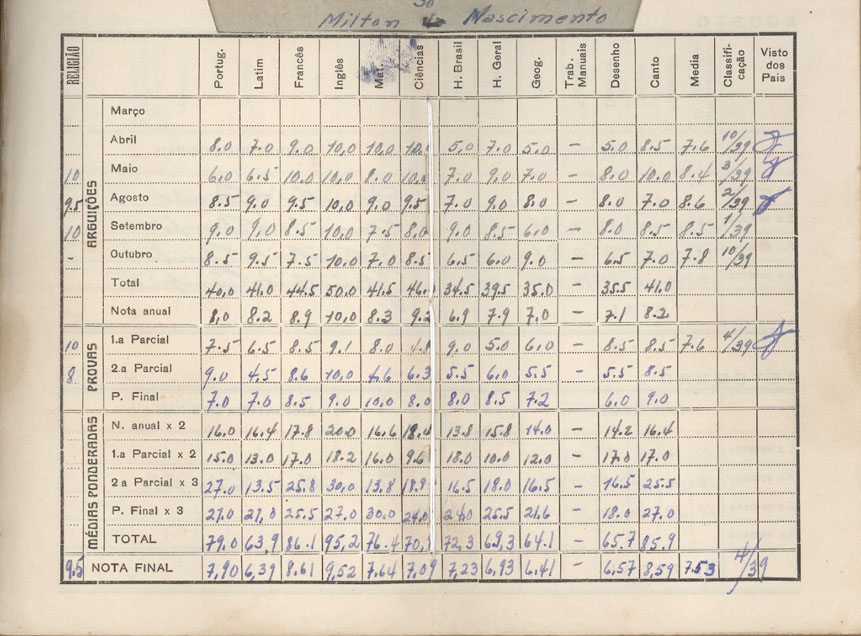 Milton do Nascimento
RELIGIÃO Portug. Latim Francês Inglês Mat. Ciências H. Brasil H. Geral Geog. Trab. Manuais Desenho Canto Media Classifi-cação Visto dos Pais
ARGUIÇÕES
Março
Abril 8.0 7.0 9.0 10,0 10,0 10,0 5.0 7.0 5.0 – 5.0 8.5 7.6 10/39
10 Maio 6,0 6.5 10.0 10,0 8.0 10,0 7.0 9,0 7.0 – 8.0 10.0 8.4 3/39
9.5 Agosto 8.5 9,0 9.5 10,0 9,0 9.5 7.0 9,0 8,0 – 8.0 7.0 8.6 2/39
10 Setembro 9.0 9,0 8.5 10,0 7.5 8,0 9,0 8.5 6,0 – 8,0 8.5 8.5 1/39
- Outubro 8.5 9.5 7.5 10,0 7,0 8.5 6.5 6,0 9,0 – 6.5 7.0 7.8 10/39
Total 40,0 41,0 44.5 50,0 41.5 46, 34.5 39.5 35,0 – 35.5 41,0
Nota anual 8,0 8.2 8.9 10,0 8.3 9.2 6.9 7.9 7,0 – 7.1 8.2
PROVAS
10 1.a Parcial 7.5 6.5 8.5 9.1 8.0 4.8 9,0 5.0 6,0 – 8.5 8.5 7.6 4/39
8 2.a Parcial 9,0 4.5 8.6 10,0 4.6 6.3 5.5 6,0 5.5 – 5.5 8.5
P. Final 7.0 7.0 8.5 9.0 10,0 8,0 8.0 8.5 7.2 6,0 9,0
MÉDIAS PONDERADAS
N. anual x 2 16.0 16.4 17.8 20,0 16.6 18.4 13.8 15.8 14,0 – 14.2 16.4
1.a Parcial x 2 15,0 13,0 17,0 18.2 16,0 9.6 18,0 10,0 12,0 – 17,0 17,0
2a Parcial x 3 27.0 13.5 25.8 30,0 13.8 18.9 16.5 18.0 16.5 – 16.5 25.5
P. Final x 3 21,0 21,0 25.5 27.0 30,0 24,0 24,0 25.5 21.6 – 18.0 27.0
TOTAL 79.0 63,9 86.1 95,2 76.4 70,9 72,3 69,3 64.1 – 65.7 85.9
9.5 NOTA FINAL 7,90 6,39 8.61 9,52 7.64 7,09 7,23 6,93 6.41 – 6,57 8,59 7.53 4/39